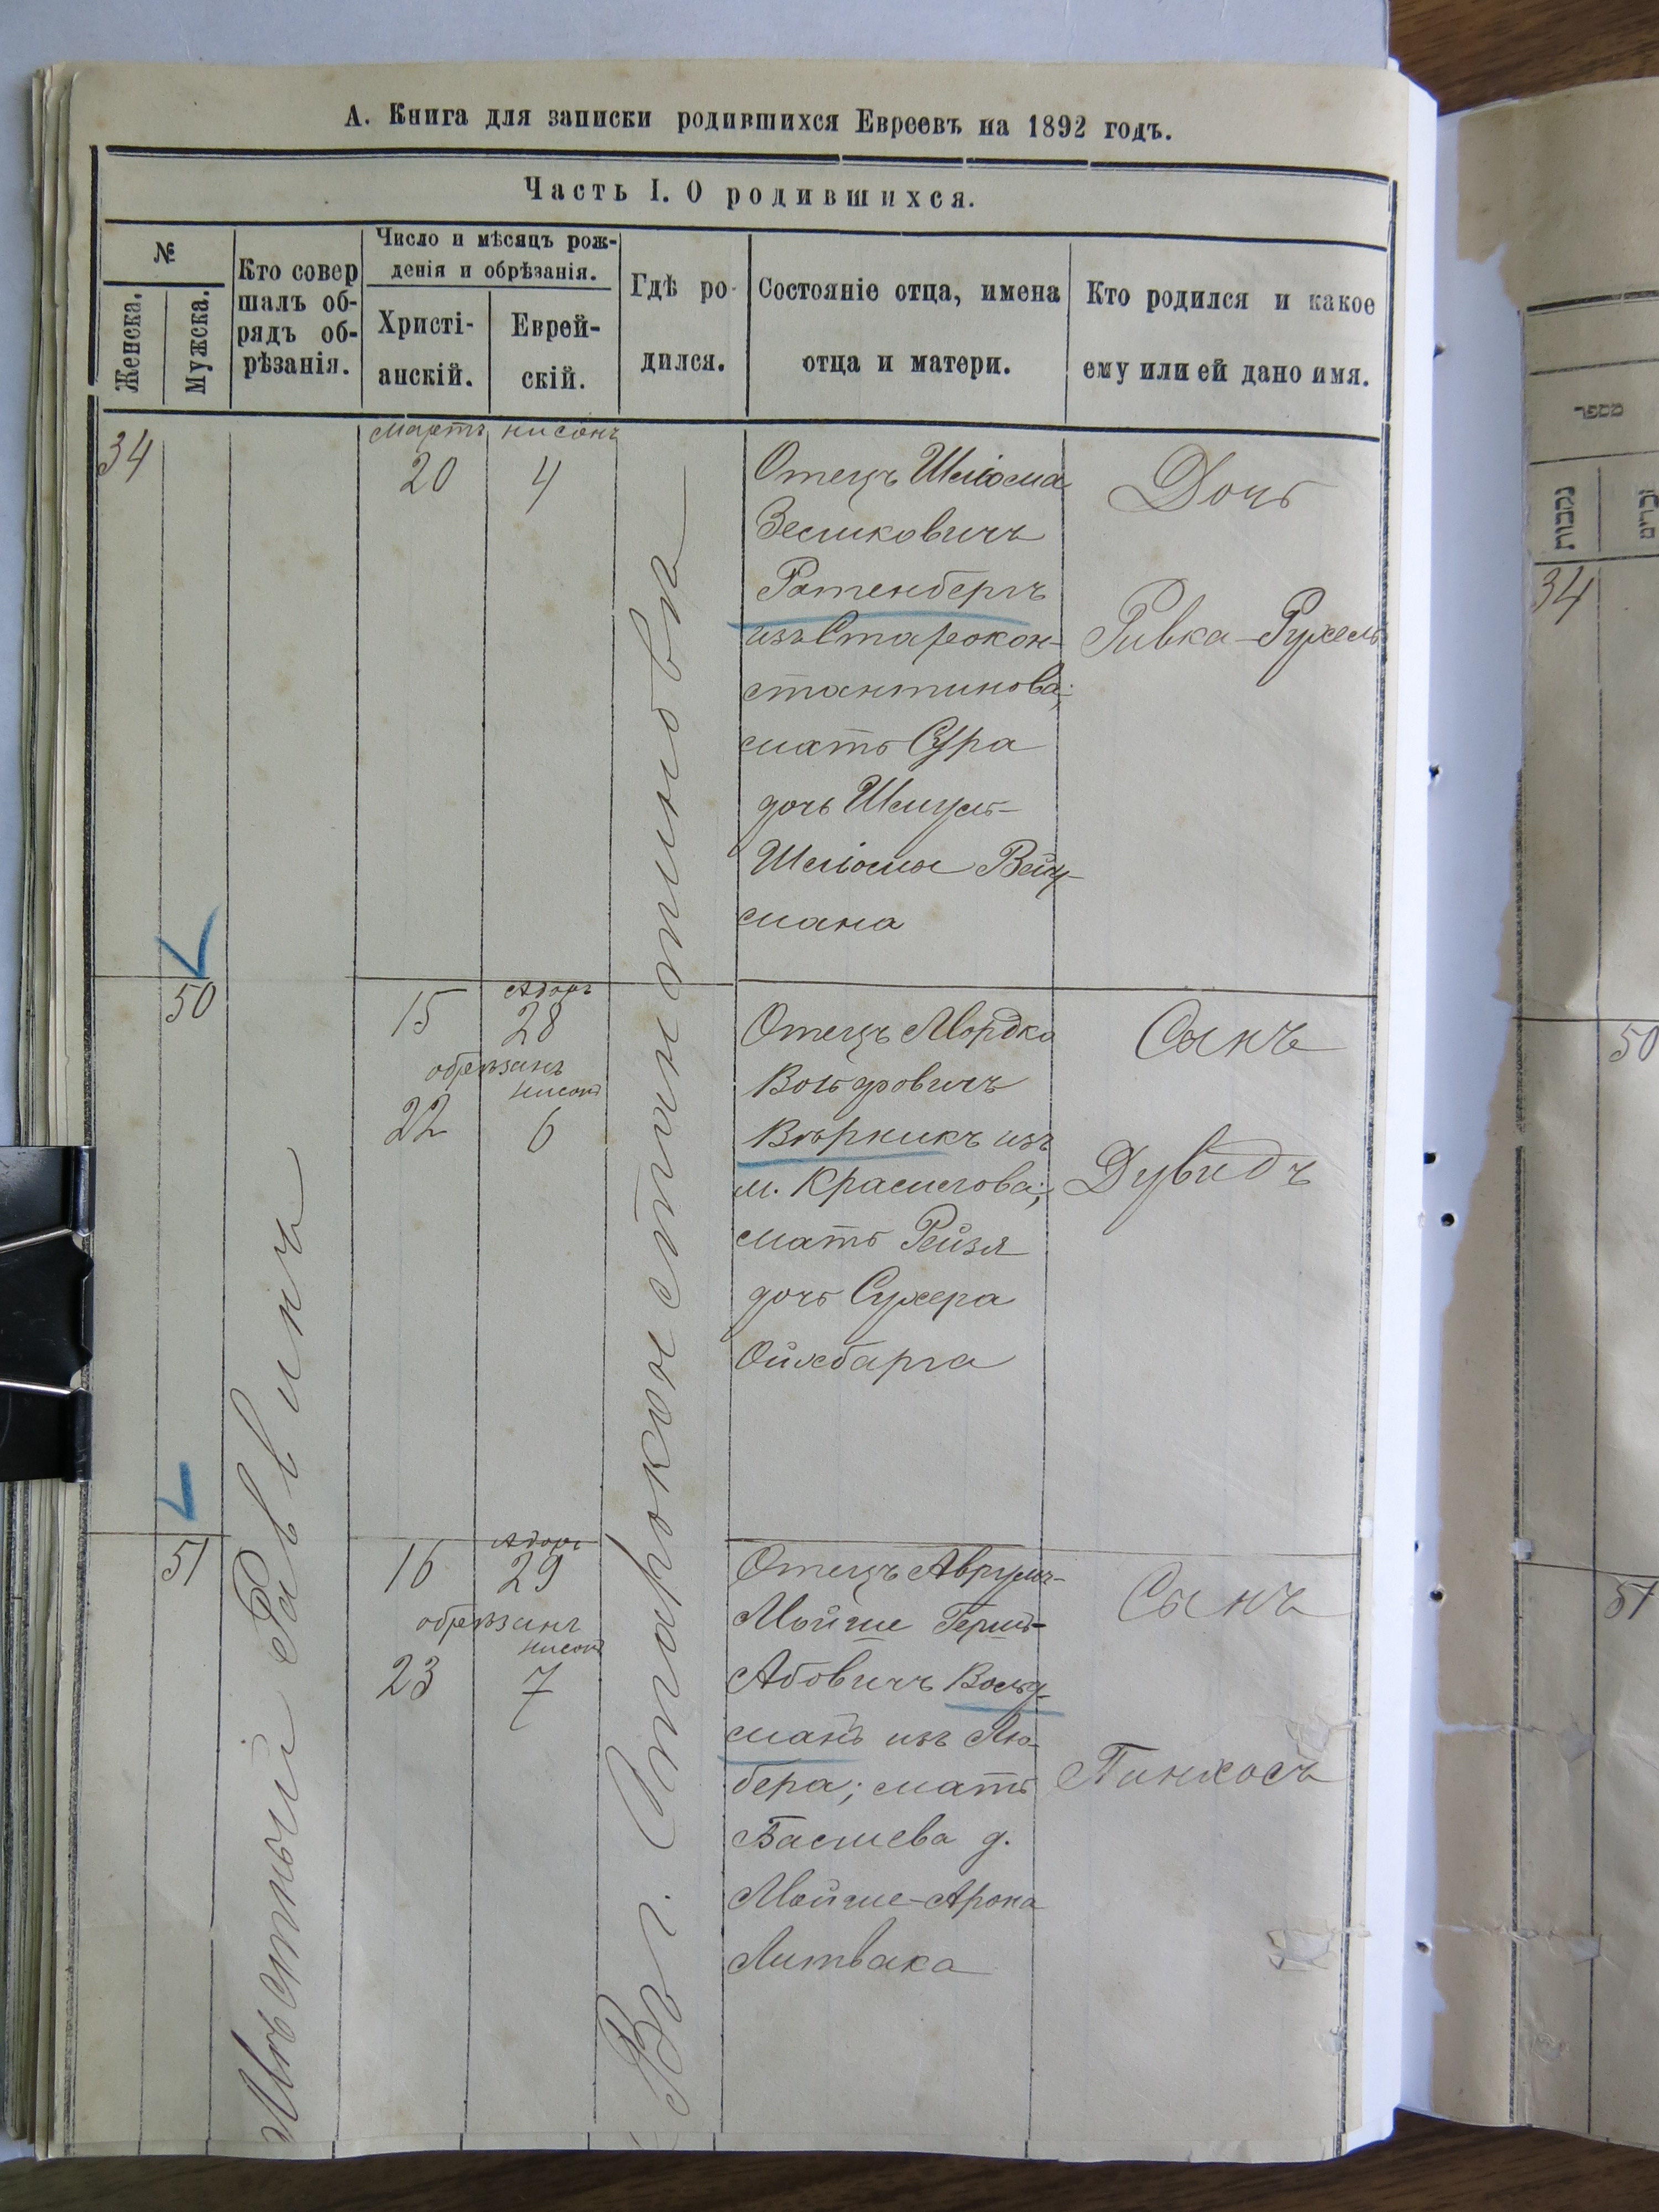 А. Книга для записки родившихся Евреевъ на 1892 годъ.
Часть I. О родившихся.
№
Женска.
Мужска.
Кто совер
шалъ об-
рядъ об-
рѣзанія.
Число и мѣсяцъ рож-
денія и обрѣзанія.
Христі-
анскій.
Еврей-
скій.
Гдѣ ро-
дился.
Состояніе отца, имена
отца и матери.
Кто родился и какое
ему или ей дано имя.
Мѣстный Раввинъ
Въ г. Староконстантиновѣ
34
Мартъ нисонъ
20 4
Отецъ Шліома
Зесиковичъ
Ратенбергъ
изъ Старокон-
стантинова;
мать Сура
дочь Шмуль-
Шліомы Вайц-
мана
Дочь
Ривка-Рухель
50
15
Адаръ
28
обрѣзанъ
нисонъ
22 6
Отецъ Мордко
Вольфовичъ
Вѣрникъ изъ
м. Красилова;
мать Рейзя
дочь Сухера
Ойхбарга
Сынъ
Дувидъ
51
16
Адаръ
29
обрѣзанъ
нисонъ
23 7
Отецъ Аврумъ-
Мойше Герш-
Абовичъ Вольд-
манъ изъ Лю-
бера; мать
Басшева д.
Мойше-Арона
Литвака
Сынъ
Пинхосъ
34
50
51